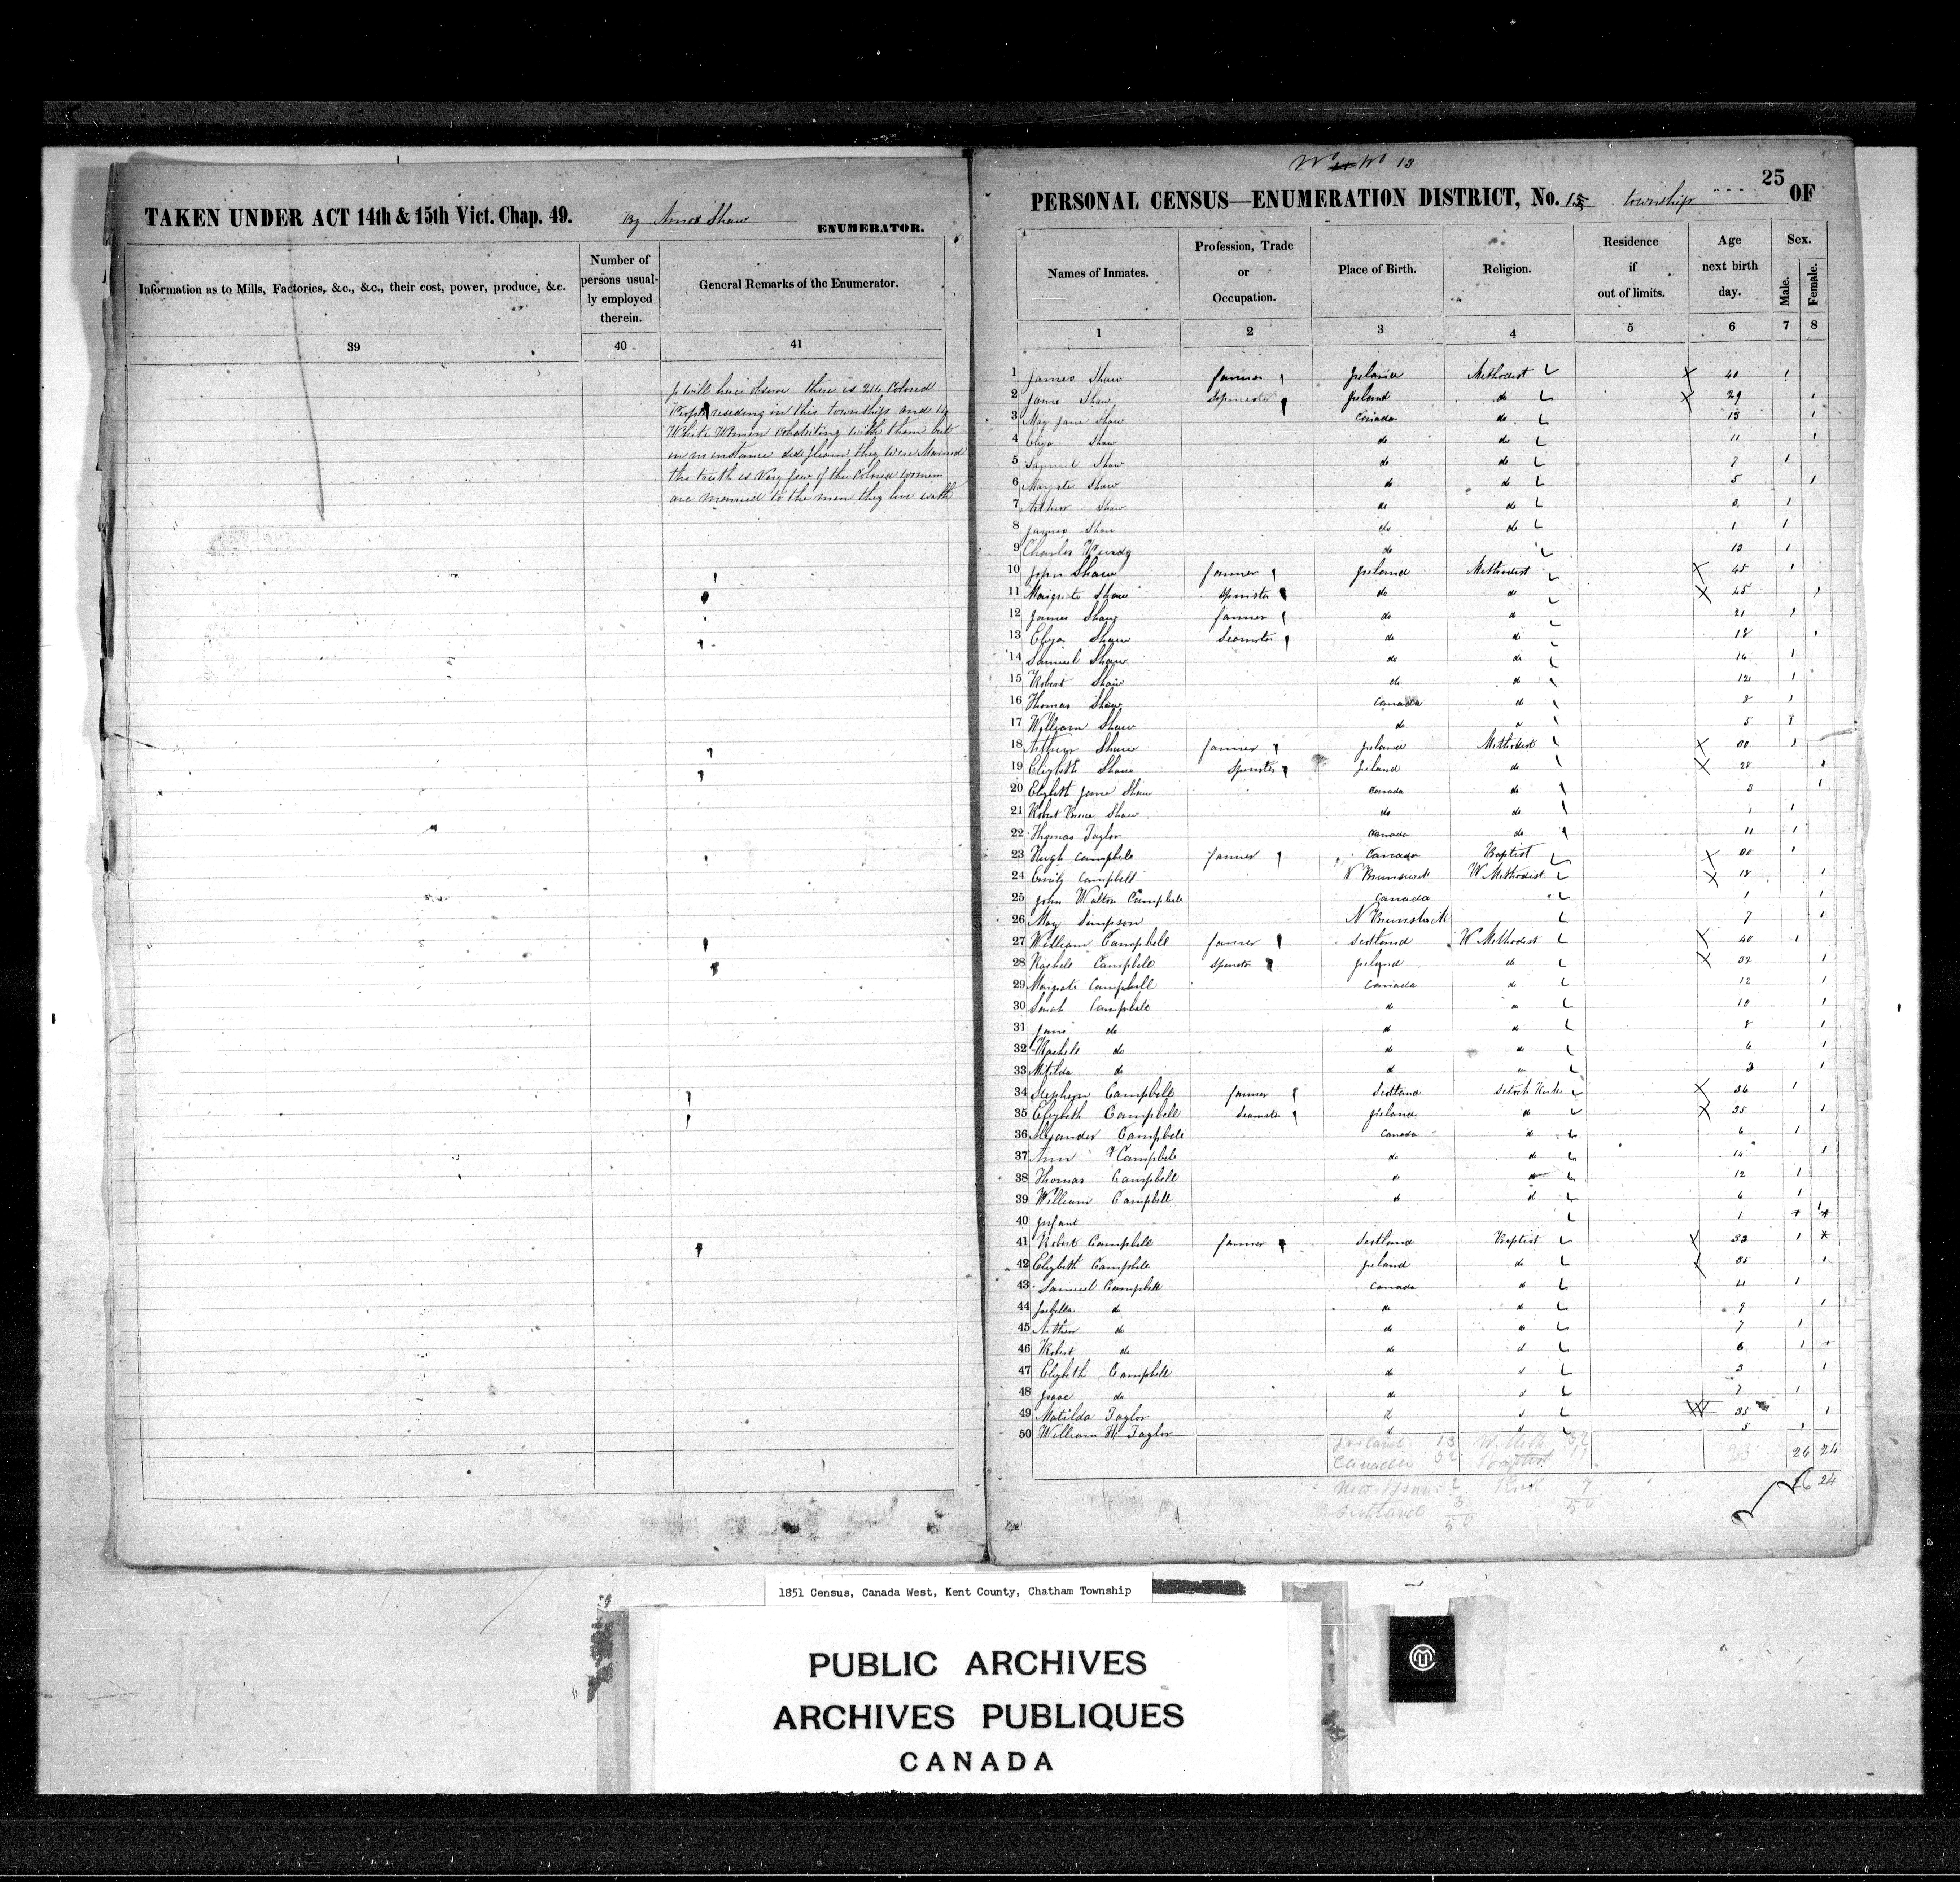 TAKEN UNDER ACT 14th & 15th Vict. Chap. 49. By Amos Shaw ENUMERATOR.
Information as to Mills, Factories, &c., &c., their cost, power, produce, &c.
Number of persons usually employed therein.
General Remarks of the Enumerator.
39 40 41
I will here observe there is 216 Colored
People residing in this township and
White Women cohabiting with them but
in instance did they were Married
the truth is Very few of the Colored women
are married to the men they live with
No 13
25
PERSONAL CENSUS—ENUMERATION DISTRICT, No. 13 township OF
Names of Inmates.
Profession, Trade or Occupation.
Place of Birth.
Religion.
Residence if out of limits.
Age next birth day.
Sex.
Male.
Female.
1 2 3 4 5 6 7 8
1 James Shaw farmer Ireland Methodist 40 1
2 Jane Shaw Spinster Ireland do 29 1
3 May Jane Shaw Canada do 13 1
4 Eliza Shaw do do 11 1
5 Samuel Shaw do do 7 1
6 Margate Shaw do do 5 1
7 Arthur Shaw do do 1
8 James Shaw do do 1 1
9 Charles do 13 1
10 John Shaw farmer Ireland Methodist 45 1
11 Margrate Shaw Spinster do do 45 1
12 James Shaw farmer do do 21 1
13 Eliza Shaw Seamster do do 18 1
14 Samuel Shaw do do 14 1
15 Robert Shaw do do 12 1
16 Thomas Shaw Canada do 8 1
17 William Shaw do do 5 1
18 Arthur Shaw farmer Ireland Methodist 1
19 Elizbeth Shaw Spinster Ireland do 28 1
20 Elizbeth Jane Shaw Canada do 3 1
21 Robert Shaw do do 1 1
22 Thomas Taylor Canada do 11 1
23 Hugh Campbele farmer Canada Baptist 1
24 Emily Campbell N Brunswick W Methodist 18 1
25 John Walton Campbele Canada 1 1
26 May Simpson N Brunswick 7 1
27 William Campbele farmer Scotland W Methodist 40 1
28 Rachele Campbele Spinster Ireland do 32 1
29 Margate Campbell Canada do 12 1
30 Sarah Campbele do do 10 1
31 Jane do do do 8 1
32 Rachele do do do 6 1
33 Matilda do do do 3 1
34 Stephen Campbell farmer Scotland Scotch Kirk 36 1
35 Elizbeth Campbell Seamster Ireland do 35 1
36 Alexander Campbele Canada do 6 1
37 Ann Campbele do do 14 1
38 Thomas Campbell do do 12 1
39 William Campbell do do 6 1
40 Infant 1 1
41 Robert Campbell farmer Scotland Baptist 33 1
42 Elizbeth Campbele Ireland do 35 1
43 Samuel Campbele Canada do 11 1
44 Isabella do do do 9 1
45 Arthur do do do 7 1
46 Robert do do do 6 1
47 Elizbeth Campbell do do 3 1
48 Isaac do do do 1 1
49 Matilda Taylor do do 35 1
50 William H Taylor do 5 1
Ireland 13 W. Meth 32 23 26 24
Canada 32 Baptist 11
New Brun: 2 Kirk 7 26 24
Scotland 3 50
50
1851 Census, Canada West, Kent County, Chatham Township
PUBLIC ARCHIVES
ARCHIVES PUBLIQUES
CANADA